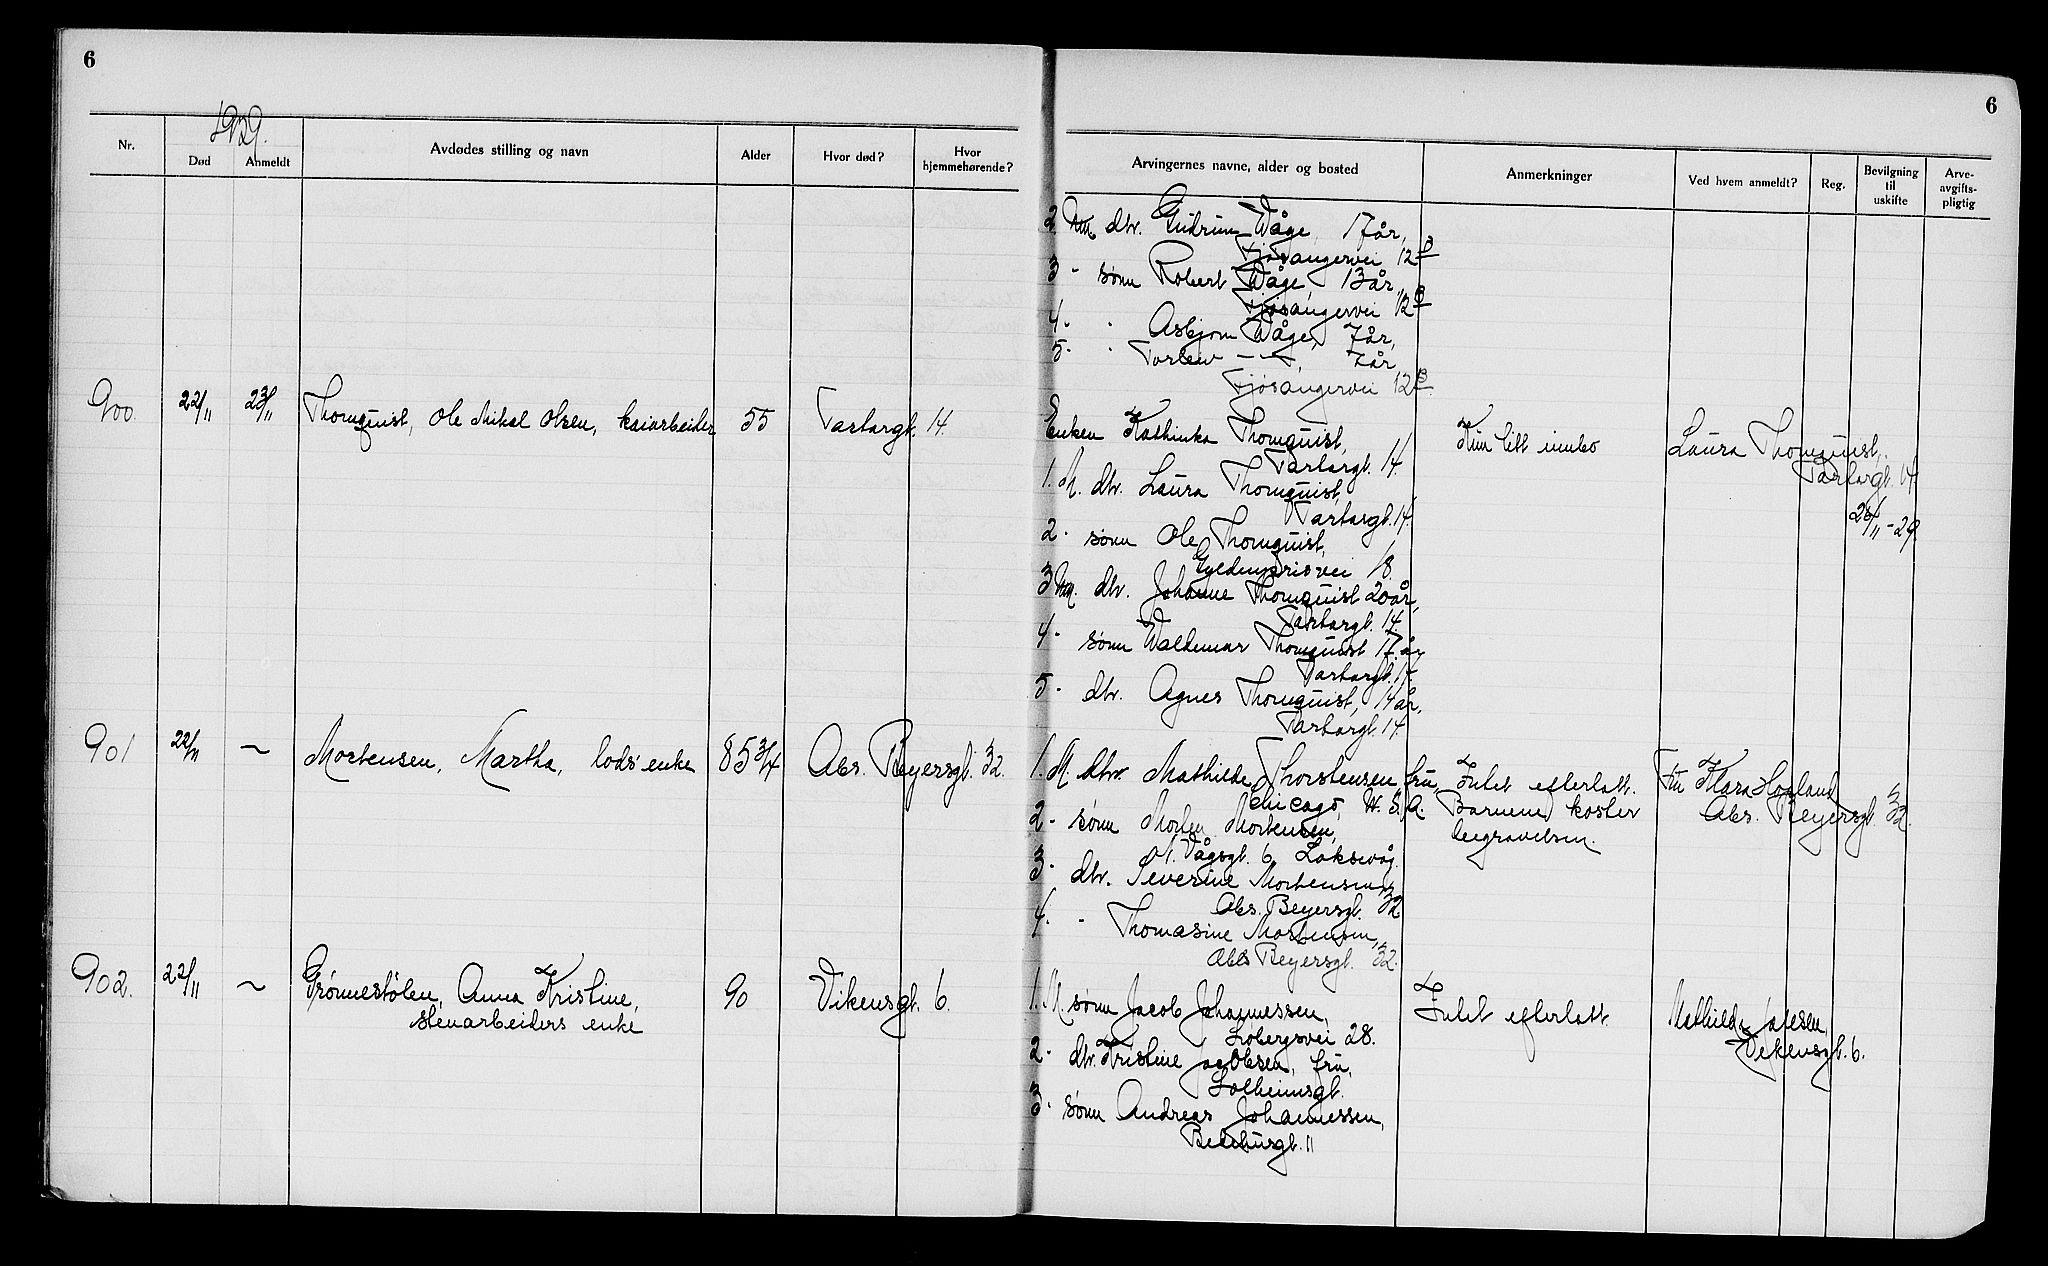 6
1929.
Nr.
Død
Anmeldt
Avdødes stilling og navn
Alder
Hvor død?
Hvor
hjemmehørende?
900.
22/11
23/11
Thornquist, Ole Mikal Olsen, kaiarbeider
55
Tartargt. 14.
901
22/11
~
Mortensen, Martha, lods' enke
85 3/4
Abs. Beyersgt. 32.
902.
22/11
~
Grønnestølen, Anna Kristine,
stenarbeiders enke
90
Vikensgt. 6.
6
Arvingernes navne, alder og bosted
Anmerkninger
Ved hvem anmeldt?
Reg.
Bevilgning
til
uskifte
Arve-
avgifts-
pligtig
2. Um. dtr. Gudrun Våge, 17 år,
Fjøsangervei 12 B
3 - sønn Robert Våge, 13 år,
Fjøsangervei 12 B
4. - Asbjørn Våge, 7 år,
5. - Torleiv - " - , 7 år
Fjøsangervei 12 B.
Enken Kathinka Thornquist,
Tartargt. 14.
1. M. dtr. Laura Thornquist,
Tartargt. 14.
2 - sønn Ole Thornquist,
Gyldenprisvei 18.
3 Um. dtr. Johanne Thornquist 20 år,
Tartargt. 14.
4 - sønn Waldemar Thornquist 17 år
Tartargt. 14
5 - dtr. Agnes Thornquist, 14 år,
Tartargt. 14.
Kun litt innbo
Laura Thornquist,
Tartargt. 14
26/11-29
1. M. dtr. Mathilde Thorstensen, fru,
Chicago, U.S.A.
2 - sønn Morten Mortensen,
Vågsgt. 6 Laksevåg.
3 - dtr. Severine Mortensen,
Abs. Beyersgt. 32
4. - Thomasine Mortensen,
Abs Beyersgt. 32.
Intet efterlatt.
Barnene koster
begravelsen.
Fru Klara Hopland
Abs. Beyersgt. 32.
1. M. sønn Jacob Johannessen,
Løbergsvei 28.
2 - dtr. Kristine Jacobsen, fru,
Solheimsgt.
3 - sønn Andreas Johannessen,
11
Intet efterlatt
Mathilde
Vikensgt. 6.